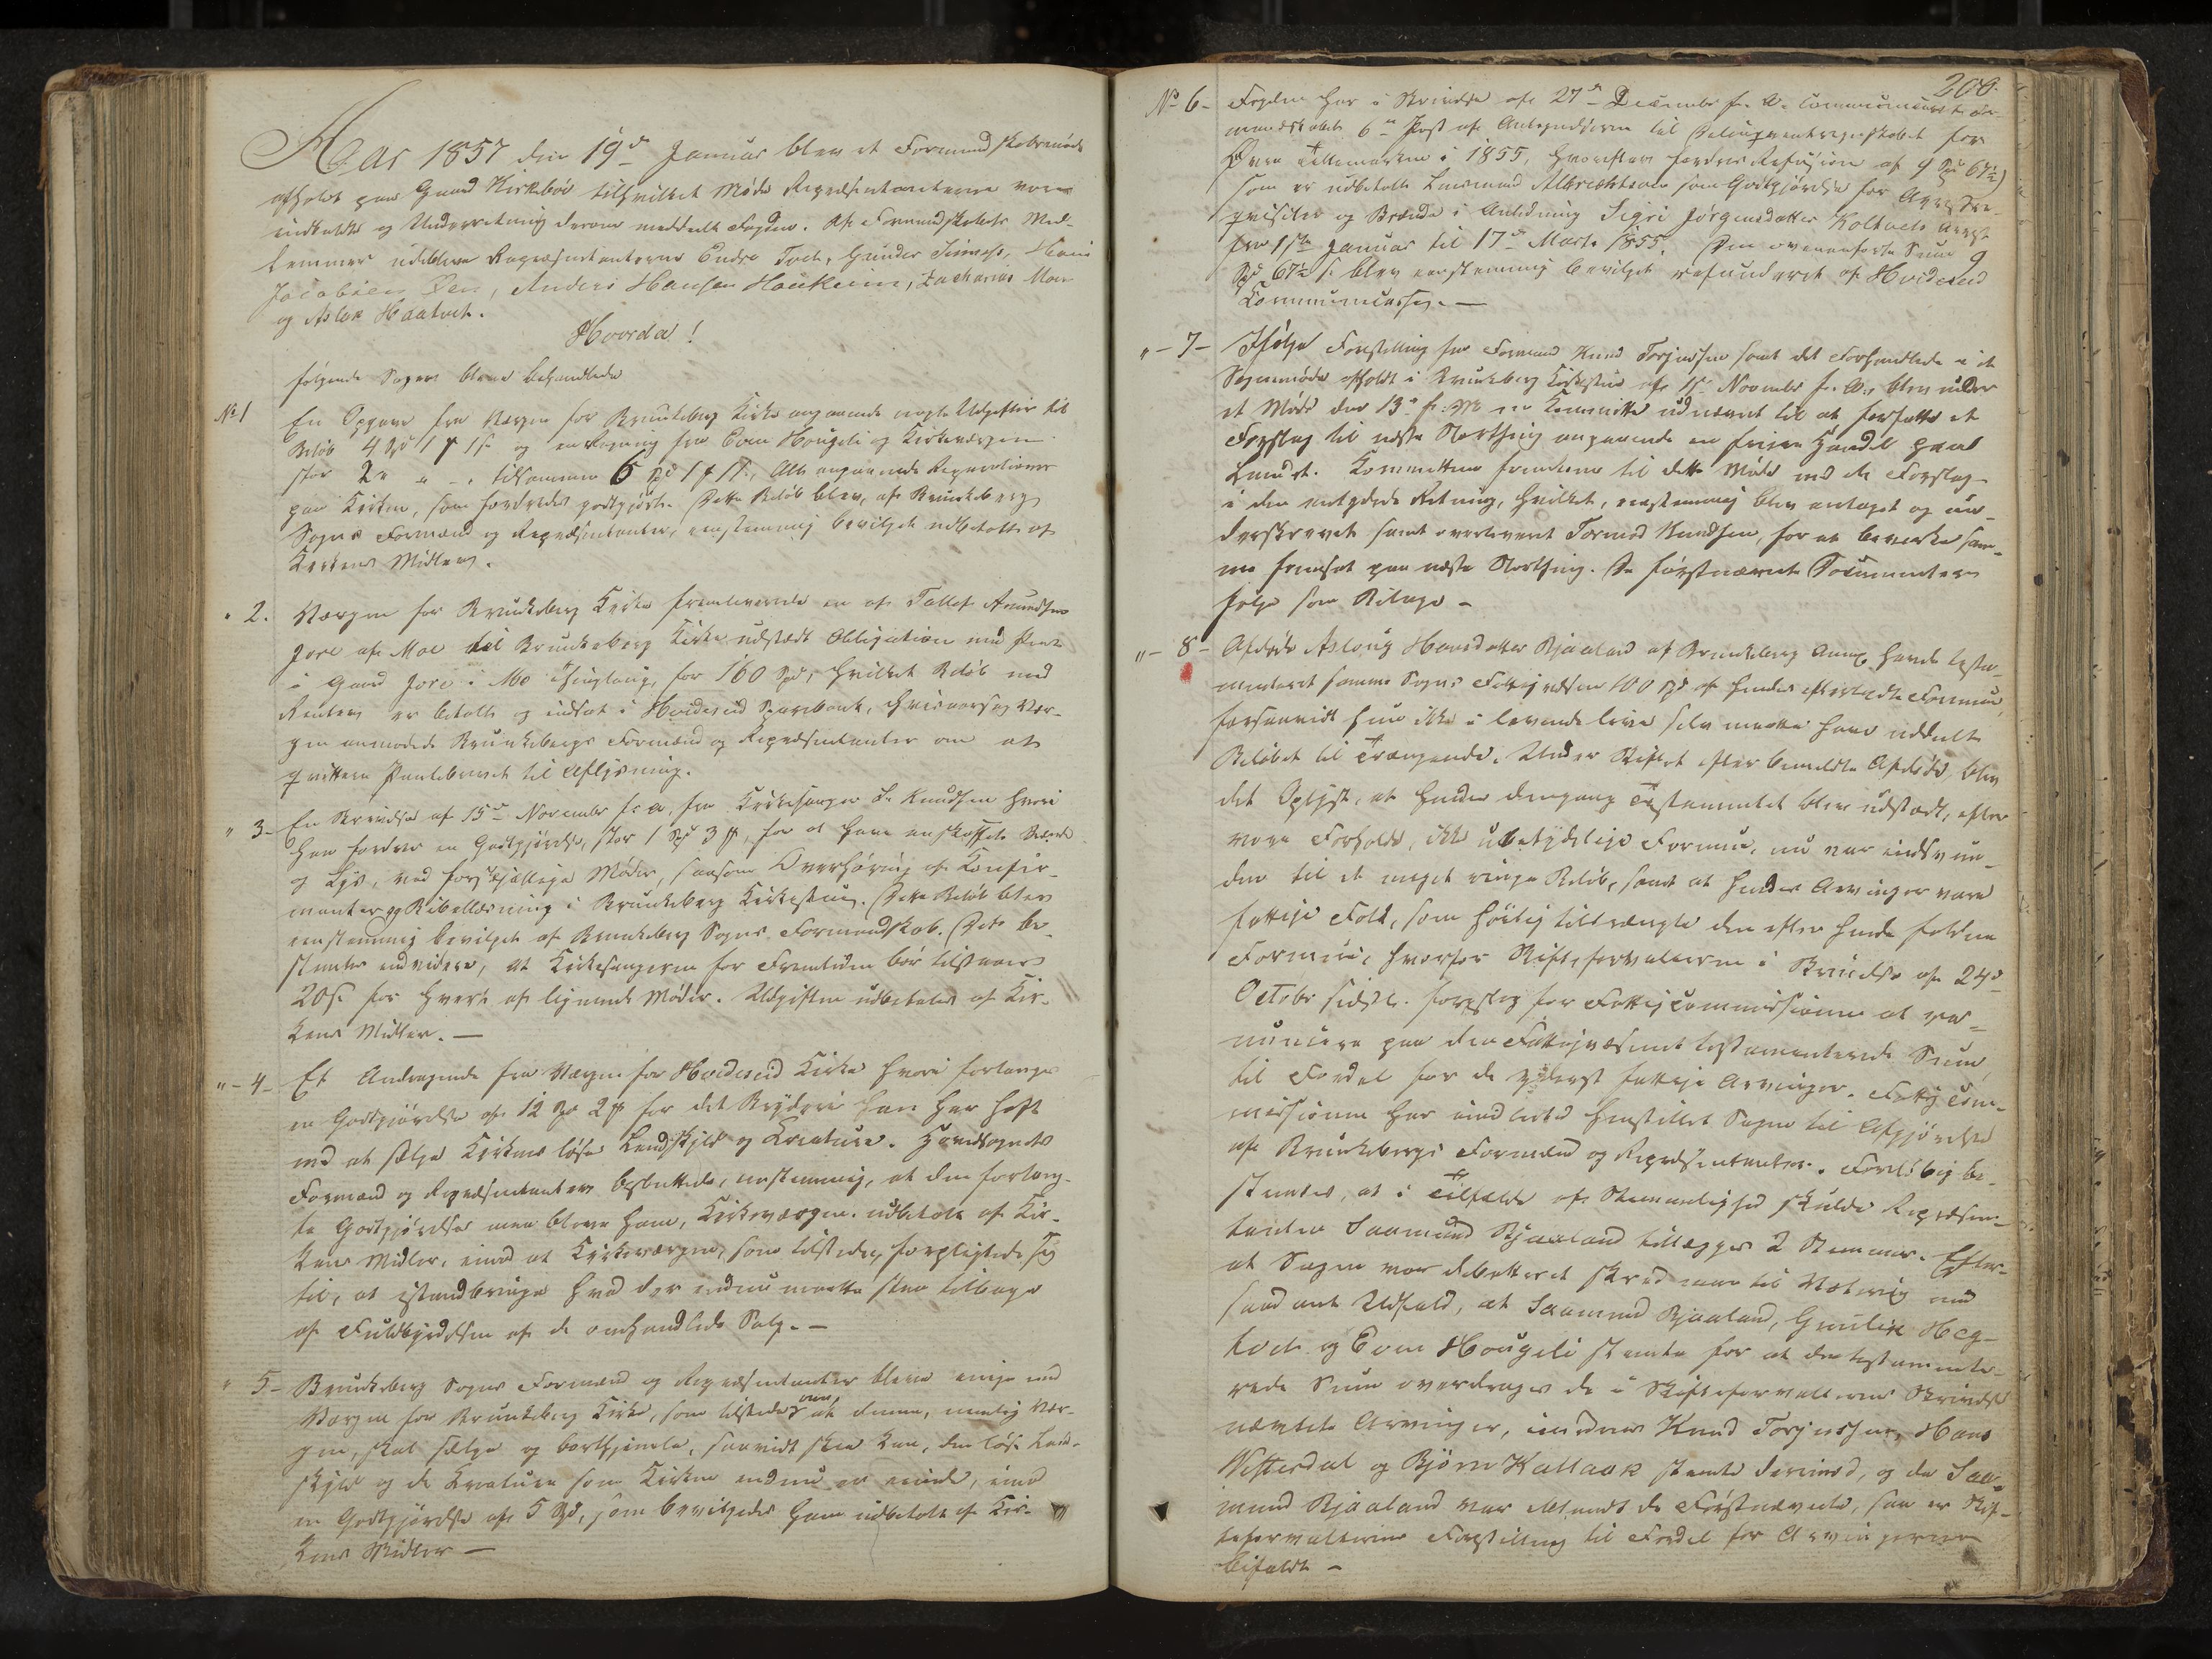 Aar 1857 den 19de Januar blev et Formandskabsmøde
afholdt paa Gaard Kirkebøe tilhvilket Møde Repræsentanterne vare
indkaldte og Underretning derom meddeelt Fogden. Af Formandskabets Med-
lemmer udebleve Repræsentanterne Endre Tveit, Gunder Simones, Hans
Jacobsen Øen, Anders Hansen Haukeim, Zacharias Moen
og Aslak Haatveit.
Hvorda!
følgende Sager bleve behandlede
No 1 En Opgave fra Værgen for Brunkeberg Kirke angaaende nogle Udgifter til
Beløb 4 Spd 1 # 1 s. og en Regning fra Even Hougeli og Kirkeværgen
stor 2 " " - , tilsammen 6 Spd 1 # 1 s., Alt angaaende Reparationer
paa Kirken, som fordredes godtgjørte. Dette Beløb blev, af Brunkeberg
Sogns Formænd og Repræsentanter, eenstemmig bevilget udbetalt af
Kirkens Midler.
" 2. Værgen for Brunkeberg Kirke fremleverede en af Tallef Amundsen
Jore af Moe til Brunkeberg Kirke udstædt Obligation med Pant
i Gaard Jore i Mo Thinglaug, for 160 Spd, hvilket Beløb med
Renter er betalt og indsat i Hvideseid Sparebank, hvisaarsag Vær-
gen anmodede Brunkebergs Formænd og Repræsentanter om at
qvittere Pantebrevet til Aflysning.
" 3- En Skrivelse af 15de November f. a. fra Kirkesanger T. Knudsen hvori
han fordrer en Godtgjørelse, stor 1 Spd 3 #, for at have anskaffet Brænde
og Lys, ved forskjællige Møder, saasom Overhøring af Konfir-
manter og Bibellæsning i Brunkeberg Kirkestue. Dette Beløb blev
eenstemmig bevilget af Brunkeberg Sogns Formandskab. Dette be-
stemte endvidere, at Kirkesangeren for Fremtiden bør tilstaaes
20 s. for hvert af lignende Møder. Udgiften udbetales af Kir-
kens Midler. —
"-4- Et Andragende fra Værgen for Hvideseid Kirke hvori forlanges
en Godtgjørelse af 12 Spd 2 # for det Bryderie han har haft
med at sælge Kirkens løse Landskyld og Kreature. Hovedsognets
Formænd og Repræsentanter besluttede, eenstemmig, at den forlang-
te Godtgjørelse maa blive ham, Kirkeværgen, udbetalt af Kir-
kens Midler, imod at Kirkeværgen, som tilstede, forpligtede sig
til, at istandbringe hvad der endnu maatte staa tilbage
af Fuldbyrdelsen af de omhandlede Salg. —
" 5- Brunkeberg Sogns Formænd og Repræsentanter bleve enige med
Værgen for Brunkeberg Kirke, som tilstede, om at denne, nemlig Vær-
gen, skal sælge og borthjemle, saavidt skee kan, den løse Land-
skyld og de Kreature som Kirken endnu er eiende, imod
en Godtgjørelse af 5 Spd, som bevilgedes ham udbetalt af Kir-
kens Midler —
208.
No 6- Fogden har i Skrivelse af 27de December f. A. communiceret For-
mandskabet 6te Post af Antegnelserne til Delinqventregnskabet for
Øvre Tellemarken i 1855, hvorefter fordres Refusion af 9 Spd 67½ s
som er udbetalt Lensmand Albrechtsen som Godtgjørelse for Arrestre-
qvisiter og Brænde i Anledning Sigri Jørgensdatter Koltvets Arrest
fra 1ste Januar til 17de Marts 1855. Den ovenanførte Sum 9
Spd 67½ s. blev eenstemmig bevilget refunderet af Hvideseid
Communecasse. —
"-7- Ifølge Forestilling fra Formand Knud Torjussen samt det Forhandlede i et
Sognemøde afholdt i Brunkeberg Kirkestue af 15 November f. A., blev under
et Møde den 13de f. M. en Kommitte udnævnt til at forfatte et
Forslag til næste Storthing angaaende en friere Handel paa
Landet. Kommitteen fremkom til dette Møde med et Forslag
i den antydede Retning, hvilket, eenstemmig blev antaget og un-
derskrevet samt overleveret Tormod Knudsen, for at bevirke sam-
me fremsat paa næste Storthing. De førstnævnte Documenter
følge som Bilage —
"-8- Afdøde Asloug Hansdatter Bjaaland af Brunkeberg Annex havde testa-
menteret samme Sogns Fattigvæsen 100 Spd af hendes efterladte Formue,
forsaavidt hun ikke i levende live selv maatte have uddeelt
Beløbet til Trængende. Under Skiftet efter bemeldte Afdøde, blev
det Oplyst, at hendes dengang Testamentet blev udstædt, efter
vore Forholde, ikke ubetydelige Formue, nu var indsvun-
den til et meget ringe Beløb, samt at hendes Arvinger vare
fattige Folk, som høilig tiltrængte den efter hende faldne
Formue, hvorfor Skifteforvalteren i Skrivelse af 24de
Octobr sidstl. foreslog for Fattigcommissionen at re-
nuncere paa den Fattigvæsenet testamenterede Sum
til Fordel for de yderst fattige Arvinger. Fattigcom-
missionen har imidlertid henstillet Sagen til Afgjørelse
af Brunkebergs Formænd og Repræsentanter. Foreløbig be-
stemtes, at i Tilfælde af Stemmelighed skulde Repræsen-
tanten Saamund Bjaaland tillægges 2 Stemmer. Efter-
at Sagen var debatteret skred man til Votering med
saadant Udfald, at Saamund Bjaaland, Gunlik Heg-
tvedt og Even Hougeli stemte for at den testamente-
rede Sum overdrages de i Skifteforvalterens Skrivelse
nævnte Arvinger, imedens Knud Torjussen, Hans
Vistesdal og Bjørn Kallaak stemte derimod, og da Saa-
mund Bjaaland var iblandt de Førstnævnte, saa er Skif-
teforvalterens Forestilling til Fordel for Arvingerne
bifaldt —